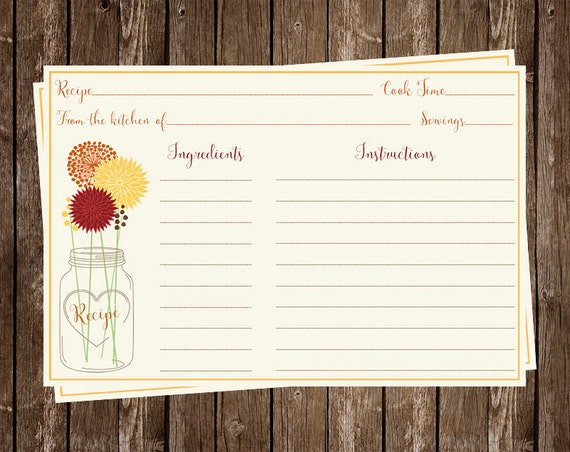 Recipe Cook Time
From the kitchen of Servings
Ingredients Instructions
Recipe